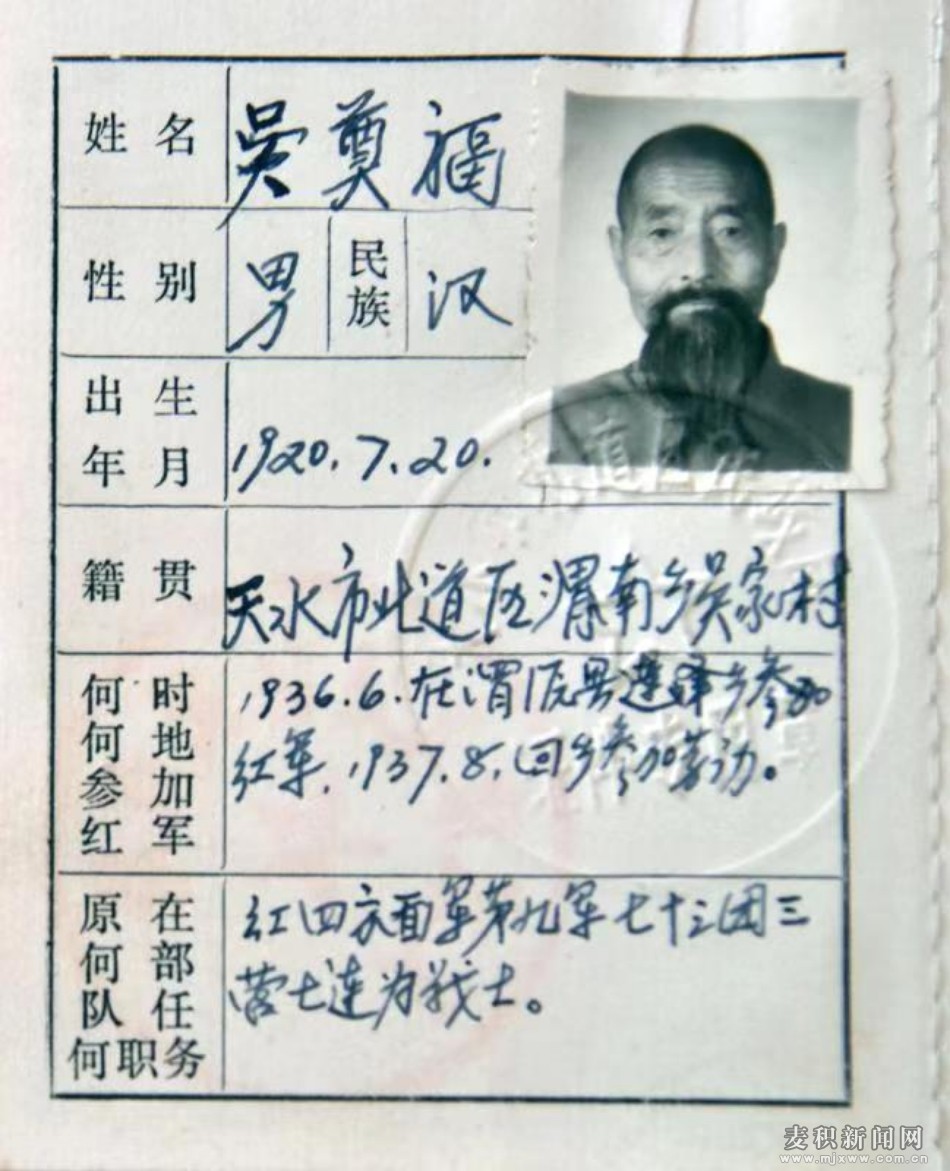 姓名 吴奠福
性别 男 民族 汉
出生年月 1920.7.20.
籍贯 天水市北道区渭南乡吴家村
何时何地参加红军 1936.6.在渭源县莲峰乡参加
红军.1937.8.回乡参加劳动。
原在何部队任何职务 红四方面军第九军七十三团三
营七连为战士。
麦积新闻网
www.mjxww.com.cn